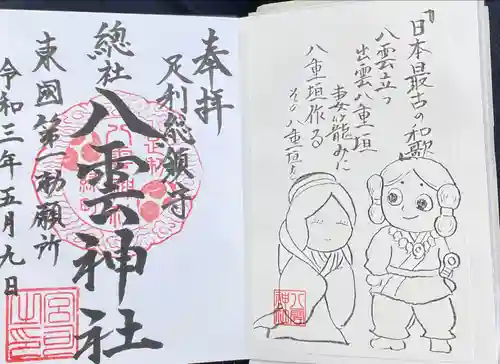 奉拝
足利総鎮守
總社
八雲神社
東國第一勅願所
令和三年五月九日
日本最古の和歌
八雲立つ
出雲八重垣
妻籠みに
八重垣作る
その八重垣を
八雲
神社